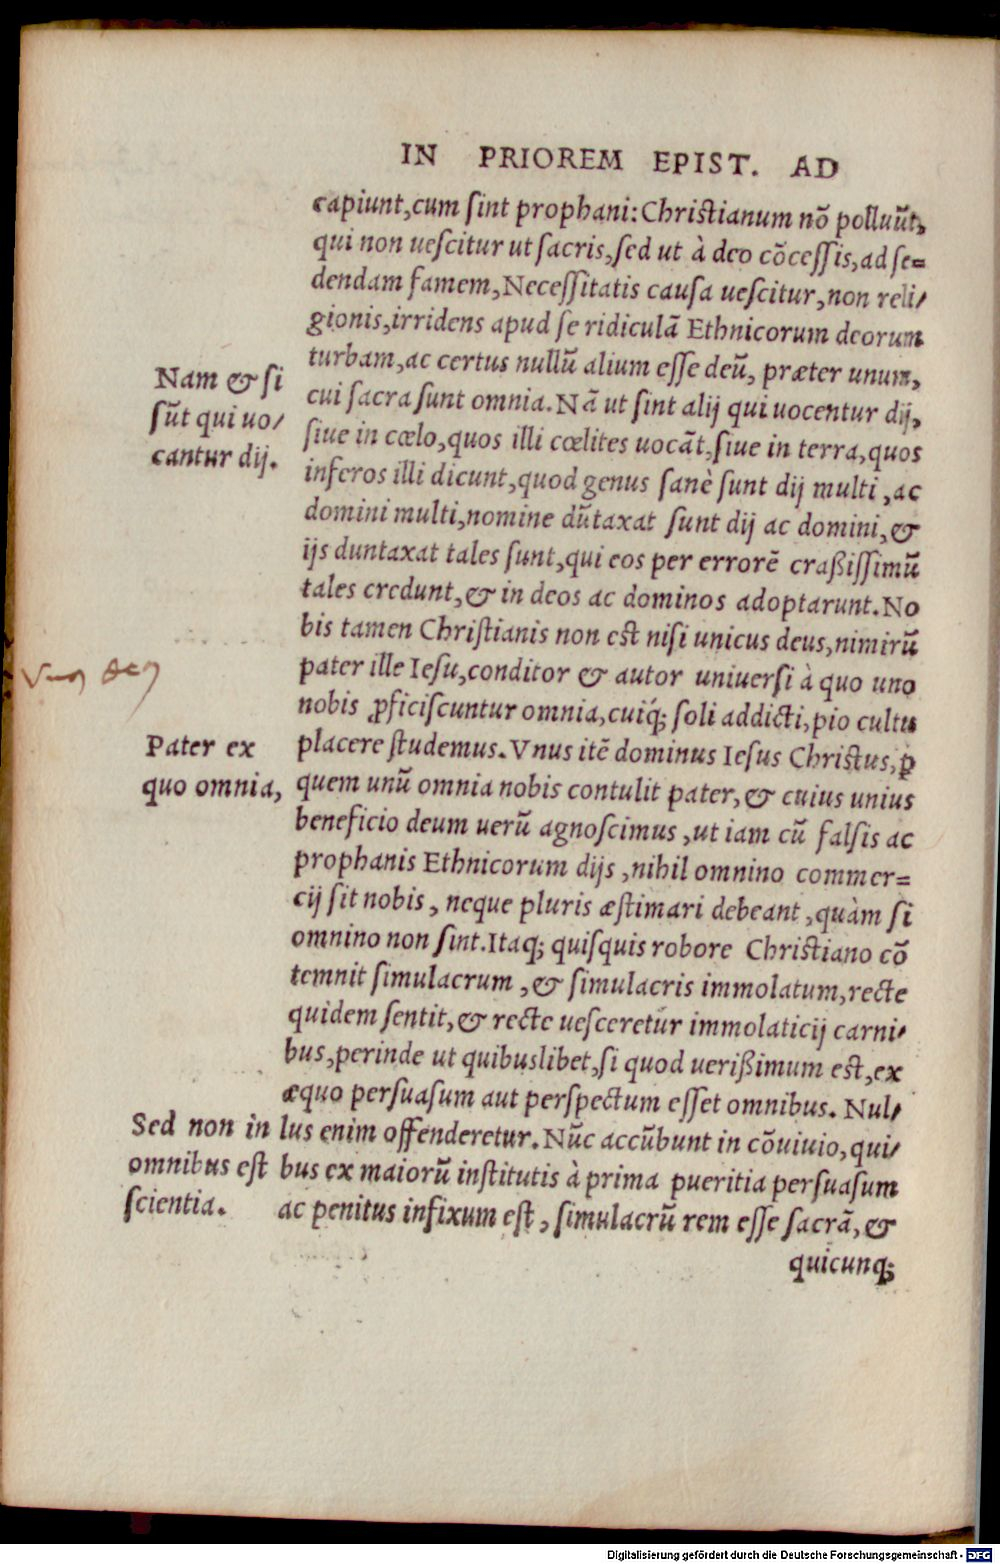 IN PRIOREM EPIST. AD
capiunt,cum ſint prophani: Chriſtianum nõ polluũt,
qui non ueſcitur ut ſacris,ſed ut à deo cõceſſis,ad ſe=
dendam famem,Neceſſitatis cauſa ueſcitur,non reli/
gionis,irridens apud ſe ridiculã Ethnicorum deorum
turbam,ac certus nullũ alium eſſe deũ, præter unum,
cui ſacra ſunt omnia.Nã ut ſint alij qui uocentur dij,
ſiue in cœlo,quos illi cœlites uocãt,ſiue in terra,quos
inferos illi dicunt,quod genus ſanè ſunt dij multi ,ac
domini multi,nomine dũtaxat ſunt dij ac domini,&
ijs duntaxat tales ſunt,qui eos per errorẽ craßiſſimũ
tales credunt,& in deos ac dominos adoptarunt.No
bis tamen Chriſtianis non eſt niſi unicus deus,nimirũ
pater ille Ieſu,conditor & autor uniuerſi à quo uno
nobis ꝓficiſcuntur omnia,cuiq́ꝫ ſoli addicti,pio cultu
placere ſtudemus.Vnus itẽ dominus Ieſus Chriſtus,ꝑ
quem unũ omnia nobis contulit pater,& cuius unius
beneficio deum uerũ agnoſcimus ,ut iam cũ falſis ac
prophanis Ethnicorum dijs ,nihil omnino commer=
cij ſit nobis, neque pluris æſtimari debeant ,quàm ſi
omnino non ſint.Itaqꝫ quiſquis robore Chriſtiano cõ
temnit ſimulacrum ,& ſimulacris immolatum,recte
quidem ſentit,& recte ueſceretur immolaticij carni/
bus,perinde ut quibuslibet,ſi quod uerißimum eſt,ex
æquo perſuaſum aut perſpectum eſſet omnibus. Nul/
lus enim offenderetur.Nũc accũbunt in cõuiuio,qui/
bus ex maiorũ inſtitutis à prima pueritia perſuaſum
ac penitus infixum eſt, ſimulacrũ rem eſſe ſacrã,&
quicunqꝫ
Nam & ſi
ſũt qui uo/
cantur dij.
Pater ex
quo omnia,
Sed non in
omnibus eſt
ſcientia.
Digitalisierung gefördert durch die Deutsche Forschungsgemeinschaft - DFG